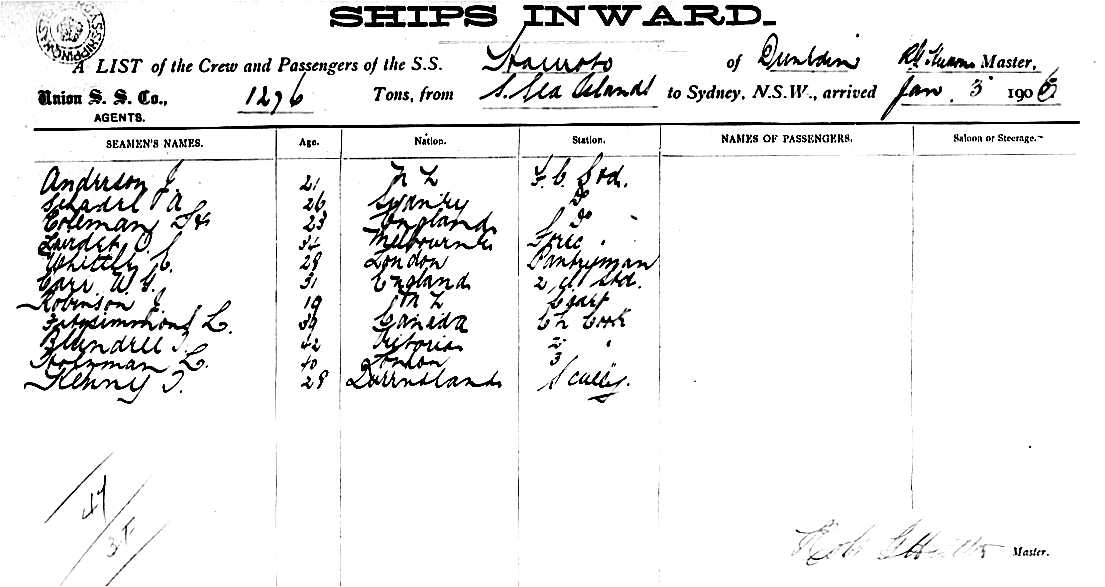 SHIPS INWARD.
A LIST of the Crew and Passengers of the S.S. of Dunedin Master,
Union S. S. Co., 1296 Tons, from S. Sea Islands to Sydney, N.S.W., arrived Jan. 3 1906
AGENTS.
SEAMEN'S NAMES. Age. Nation. Station. NAMES OF PASSENGERS. Saloon or Steerage.
Anderson J. 21 N Z F. C. Std.
A 26 Sydney Do
Coleman 23 England Do
34 Melbourne Fore
Whittle C. 28 London Pantryman
Carr W G. 31 England 2 Std.
Robinson J. 19 N Z
Fitzsimmons L. 39 Canada Ch Cook
Blundell T. 42 Victoria 2 "
L. 40 London 3
Kenny T. 28 Queensland Scully.
47
37
Master.